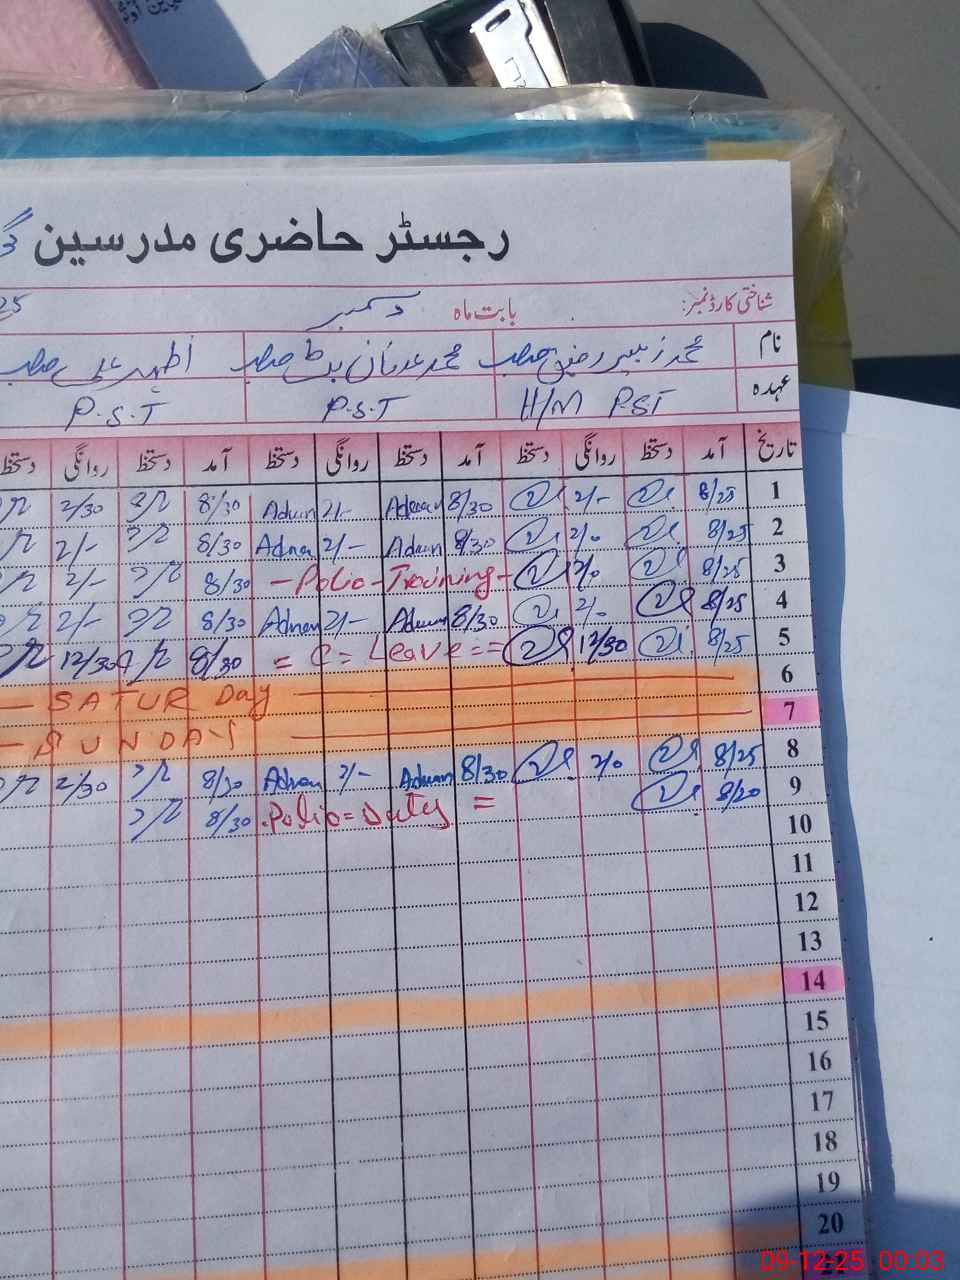 رجسٹر حاضری مدرسین
شناختی کارڈ نمبر: بابت ماہ دسمبر 25
نام محمد زبیر رفیق صاحب محمد عدنان بٹ صاحب اظہر علی صاحب
عہدہ H/M PST P.S.T P.S.T
تاریخ آمد دستخط روانگی دستخط آمد دستخط روانگی دستخط آمد دستخط روانگی دستخط
1 8/25 2/- 8/30 Adnan 2/- Adnan 8/30 2/30
2 8/25 2/0 8/30 Adnan 2/- Adnan 8/30 2/-
3 8/25 2/0 - Polio - Training - 8/30 2/-
4 8/25 2/0 8/30 Adnan 2/- Adnan 8/30 2/-
5 8/25 12/30 = C = Leave == 8/30 12/30
6 SATUR Day
7 SUNDAY
8 8/25 2/0 8/30 Adnan 2/- Adnan 8/30 2/30
9 8/20 Polio = Duty = 8/30
10
11
12
13
14
15
16
17
18
19
20
09-12-25 00:03